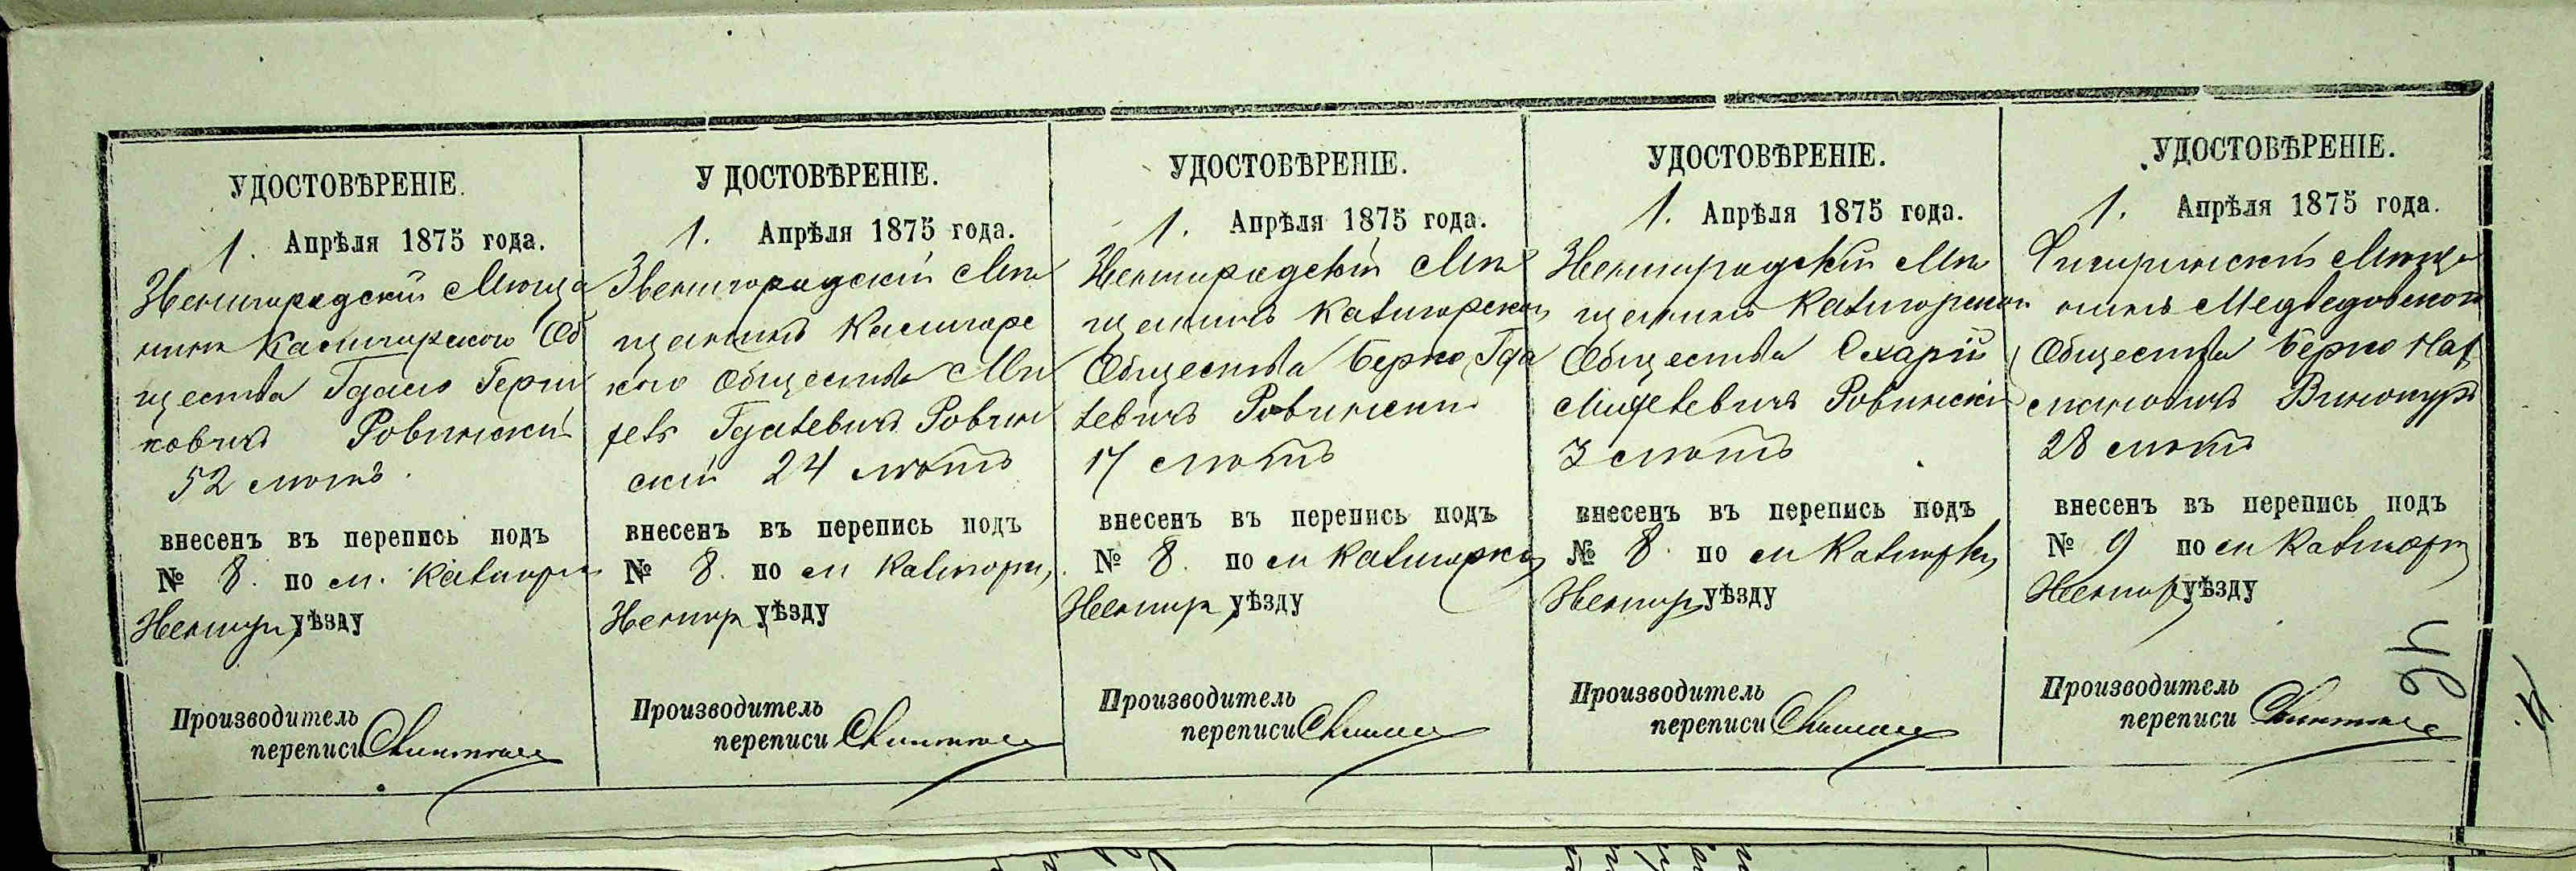 УДОСТОВѢРЕНІЕ.
1. Апрѣля 1875 года.
Звенигородскій Мѣща
нинъ Калигорскаго Об
щества Гдаль Герш
ковичъ Ровинскій
52 лѣтъ.
внесенъ въ перепись подъ
№ 8. по м. Калигорк
Звенигор уѣзду
Производитель
переписи
УДОСТОВѢРЕНІЕ.
1. Апрѣля 1875 года.
Звенигородскій Мѣ
щанинъ Калигорс
каго Общества Мо
Гдалевичъ Ровин
скій 24 лѣтъ
внесенъ въ перепись подъ
№ 8. по м Калигорк
Звенигор уѣзду
Производитель
переписи
УДОСТОВѢРЕНІЕ.
1. Апрѣля 1875 года.
Звенигородскій Мѣ
щанинъ Калигорском
Общества Берко Гда
левичъ Ровинскій
17 лѣтъ
внесенъ въ перепись подъ
№ 8. по м Калигорки
Звенигор уѣзду
Производитель
переписи
УДОСТОВѢРЕНІЕ.
1. Апрѣля 1875 года.
Звенигородскій Мѣ
щанинъ Калигорском
Общества Сахарій
Ровинскій
3 лѣтъ
внесенъ въ перепись подъ
№ 8. по м Калигорки
Звенигор уѣзду
Производитель
переписи
УДОСТОВѢРЕНІЕ.
1. Апрѣля 1875 года.
Чигиринскій Мѣща
нинъ Медведовском
Общества Берко
Винокуръ
28 лѣтъ
внесенъ въ перепись подъ
№ 9 по м Калигорк
Звенигор уѣзду
Производитель
переписи